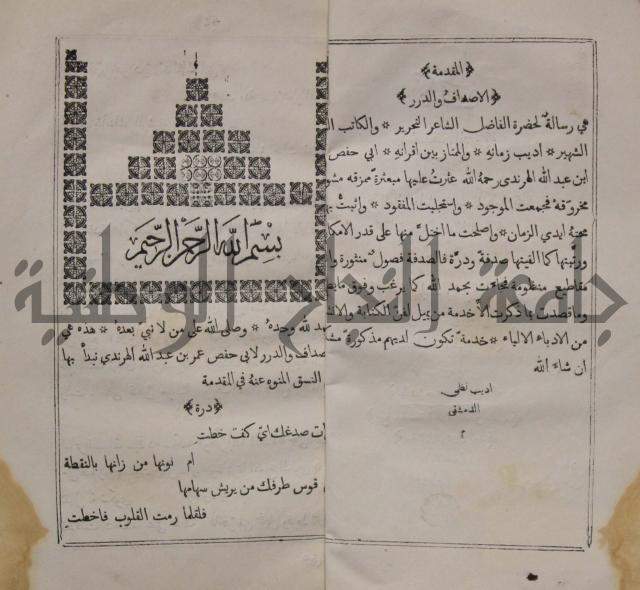 ﴿المقدمة﴾
﴿الاصداف والدرر﴾
هي رسالة لحضرة الفاضل الشاعر النحرير * والكاتب
الشهير * اديب زمانه * والممتاز بين اقرانه * ابي حفص
ابن عبد الله الهرندي رحمه الله عثرت عليها مبعثرة ممزقه
مخروقة فجمعت الموجود * واستجلبت المفقود * واثبت
محته ايدي الزمان * واصلحت ما اختل منها على قدر
ورتبتها كما الفيتها صدفة ودرة فالصدفة فصول منثورة
مقاطيع منظومة فجاءت بحمد الله كما يرغب وفوق
وما قصدت بما ذكرت الا خدمة من يميل لفن الكتابة
من الادباء الالباء * خدمة تكون لديهم مذكورة
ان شاء الله
اديب نظمي
الدمشقي
م
بسم الله الرحمن الرحيم
لله وحده * وصلى الله على من لا نبي بعده * هذه هي
والدرر لابي حفص عمر بن عبد الله الهرندي نبدأ بها
النسق المنوه عنه في المقدمة
﴿درة﴾
صدغك اي كف خطت
ام نونها من زانها بالنقطة
قوس طرفك من يريش سهامها
فلقلما رمت القلوب فاخطت
جامعة النجاح الوطنية